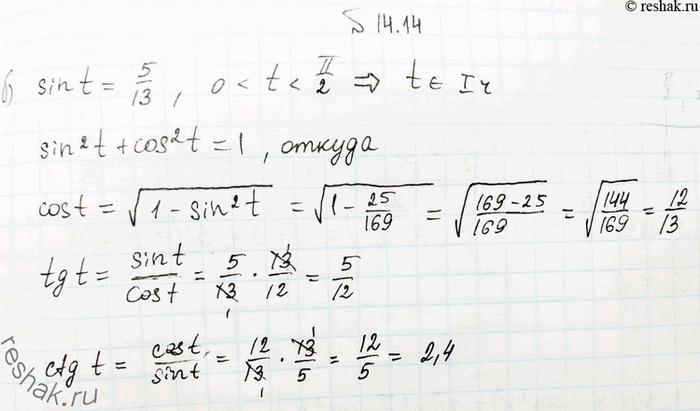 © reshak.ru
№ 14.14
б) sin t = 5/13, 0 < t < π/2 ⇒ t ∈ I ч
sin²t + cos²t = 1, откуда
cos t = √(1 − sin²t) = √(1 − 25/169) = √((169−25)/169) = √(144/169) = 12/13
tg t = sin t/cos t = 5/13 · 13/12 = 5/12
ctg t = cos t/sin t = 12/13 · 13/5 = 12/5 = 2,4
reshak.ru